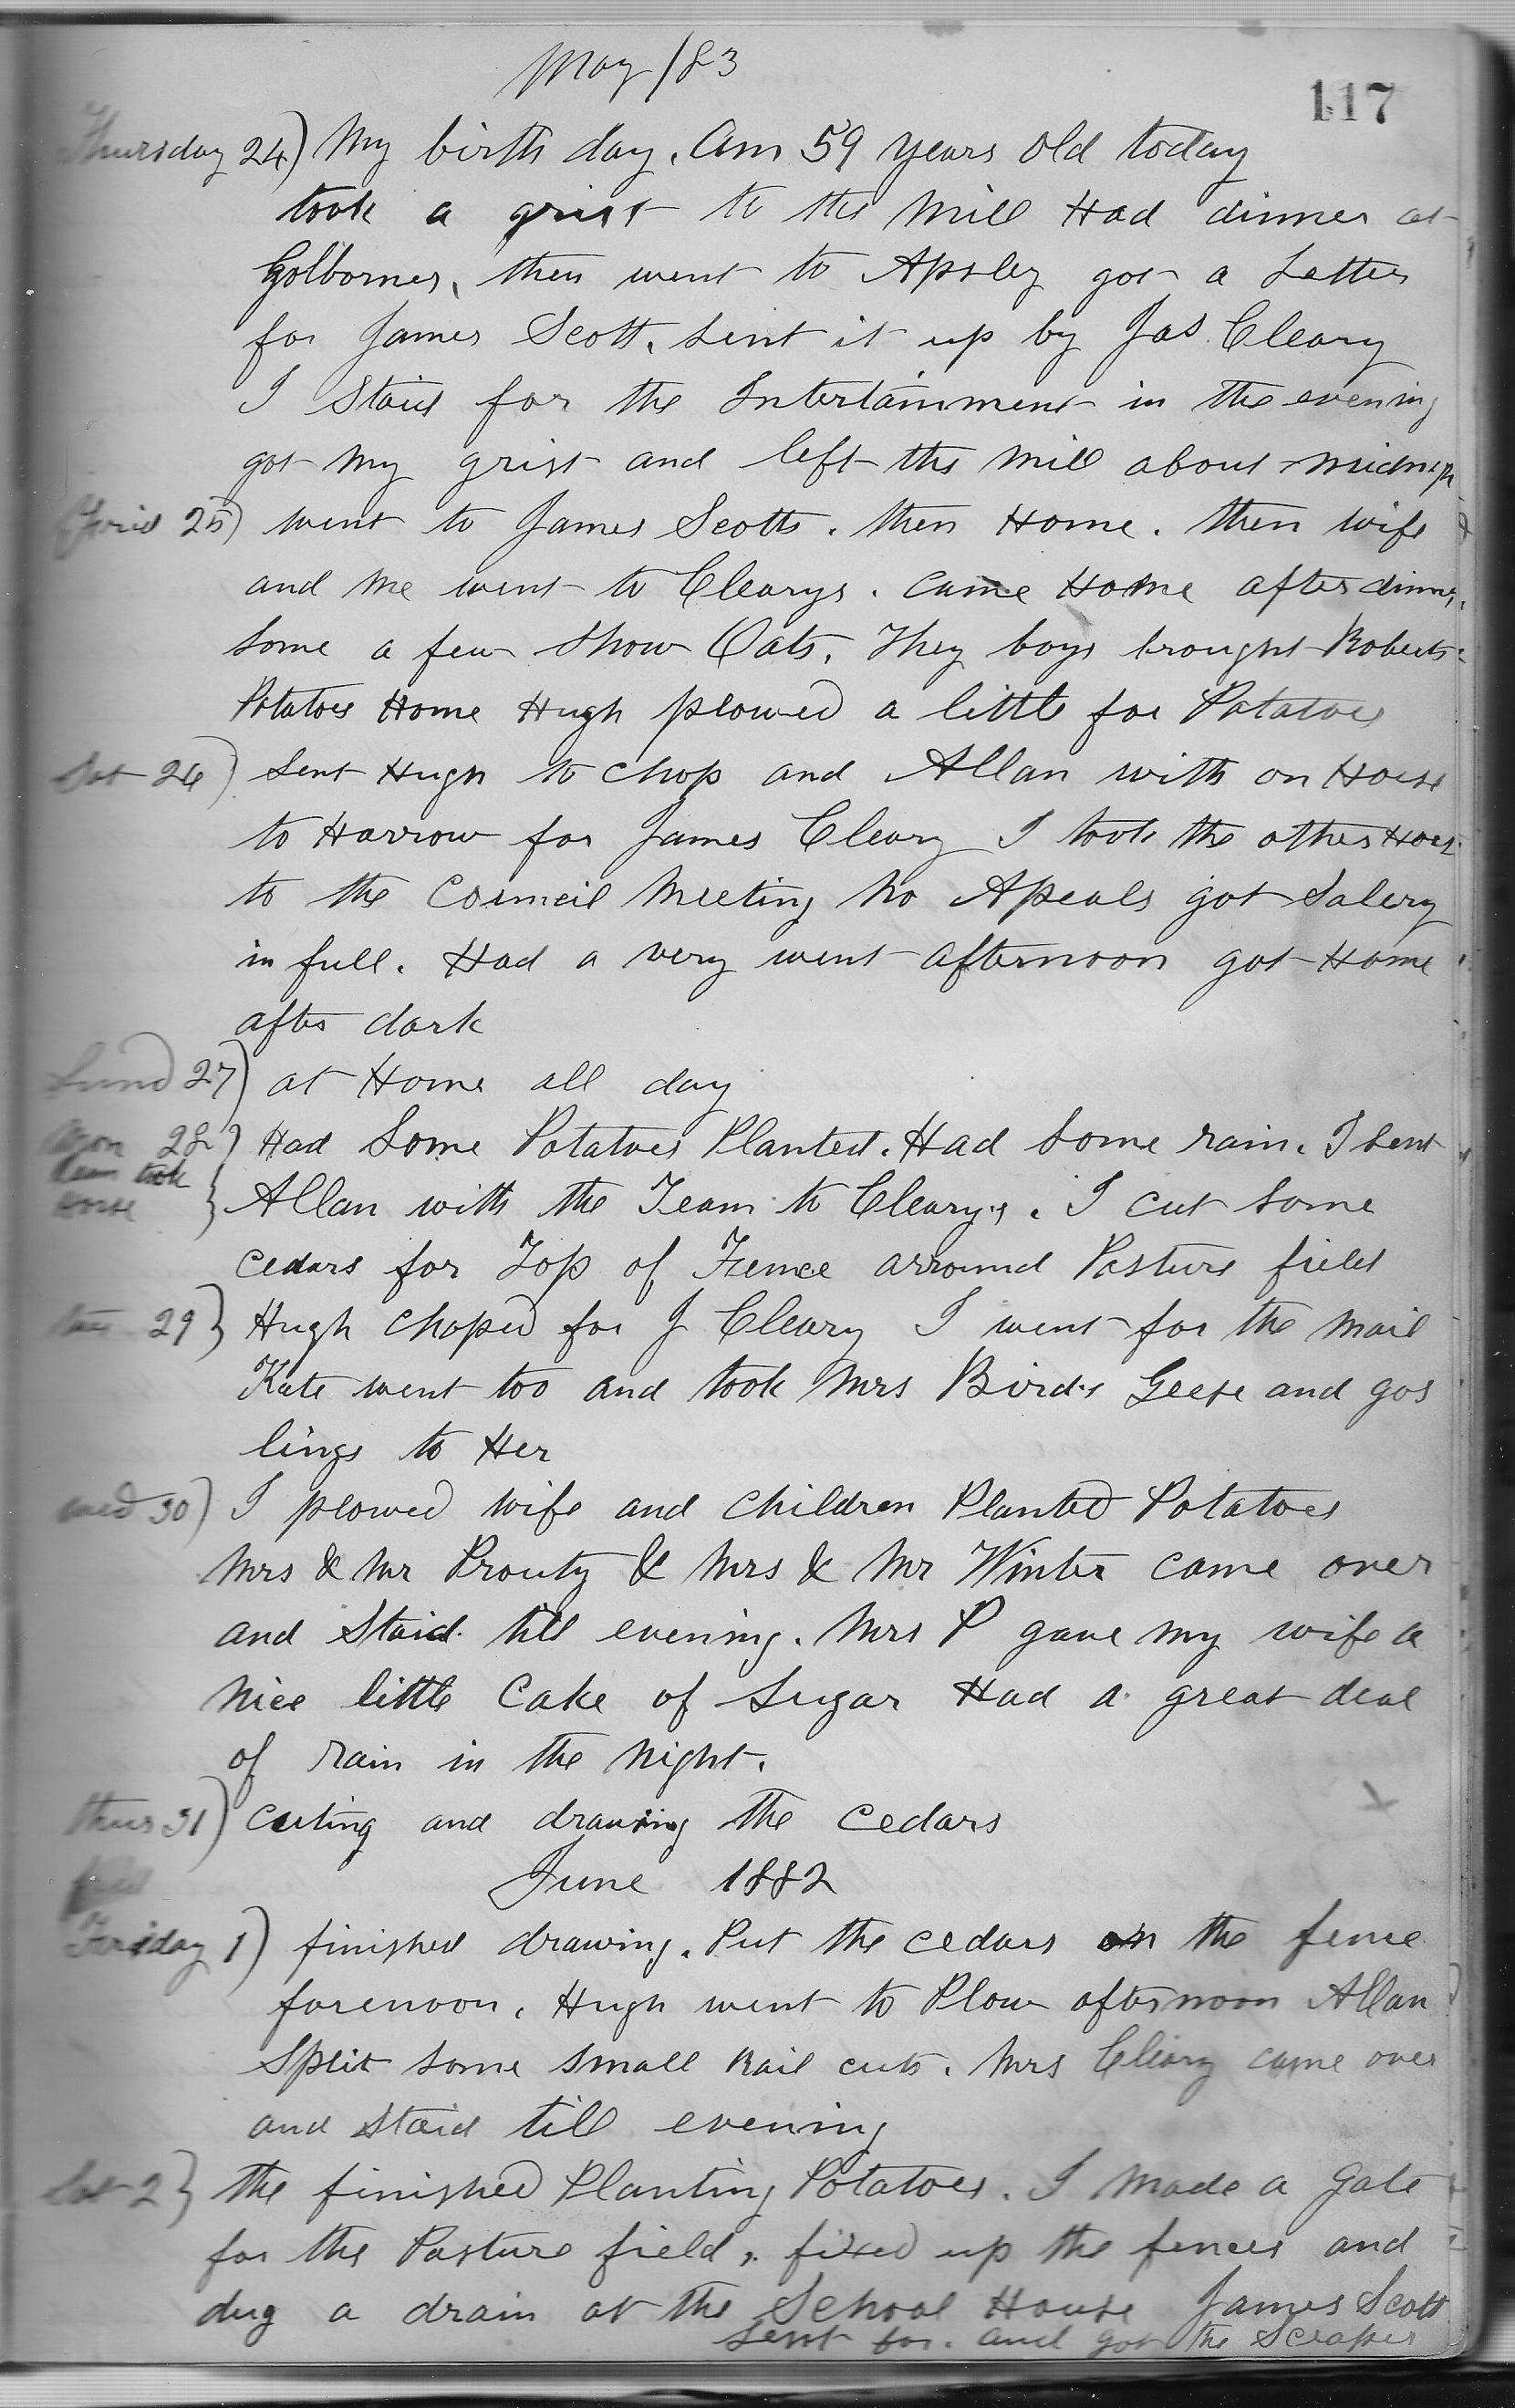 May /83
117
Thursday 24) My birth day. Am 59 years old today
took a grist to the Mill Had dinner at
Golbornes, then went to Apsley got a Letter
for James Scott. Sent it up by Jas. Cleary
I Staid for the Intertainment in the evening
got My grist and left the Mill about
25) went to James Scotts. then Home. then wife
and Me went to Clearys. Came Home after dinner.
Some a few Show Oats. They boys brought Roberts
Potatoes Home Hugh plowed a little for Potatoes
Sat 26) Sent Hugh to chop and Allan with on Horse
to Harrow for James Cleary I took the other
to the Council Meeting No Apeals got Salery
in full. Had a very went afternoon got Home
after dark
Sund 27) at Home all day
Mon 28) Had Some Potatoes Planted. Had Some rain. I Sent
took
Horse } Allan with the Team to Clearys. I cut Some
cedars for Top of Fence arround Pasture field
29} Hugh choped for J Cleary I went for the Mail
Kate went too and took Mrs Birds Geese and gos
lings to Her
Wed 30) I plowed wife and children Planted Potatoes
Mrs & Mr Prouty & Mrs & Mr Winter came over
and Staid till evening. Mrs P gave my wife a
Nice little Cake of Sugar Had a great deal
of Rain in the Night.
thurs 31) Cuting and drawing the Cedars
June 1882
Friday 1) finished drawing. Put the cedars on the fence
forenoon. Hugh went to Plow afternoon Allan
Split Some Small Rail cuts. Mrs Cleary came over
and Staid till evening
Sat 2} the finished Planting Potatoes. I Made a Gate
for the Pasture field, fixed up the fences and
dug a drain at the School House James Scott
Sent for. and got the Scraper